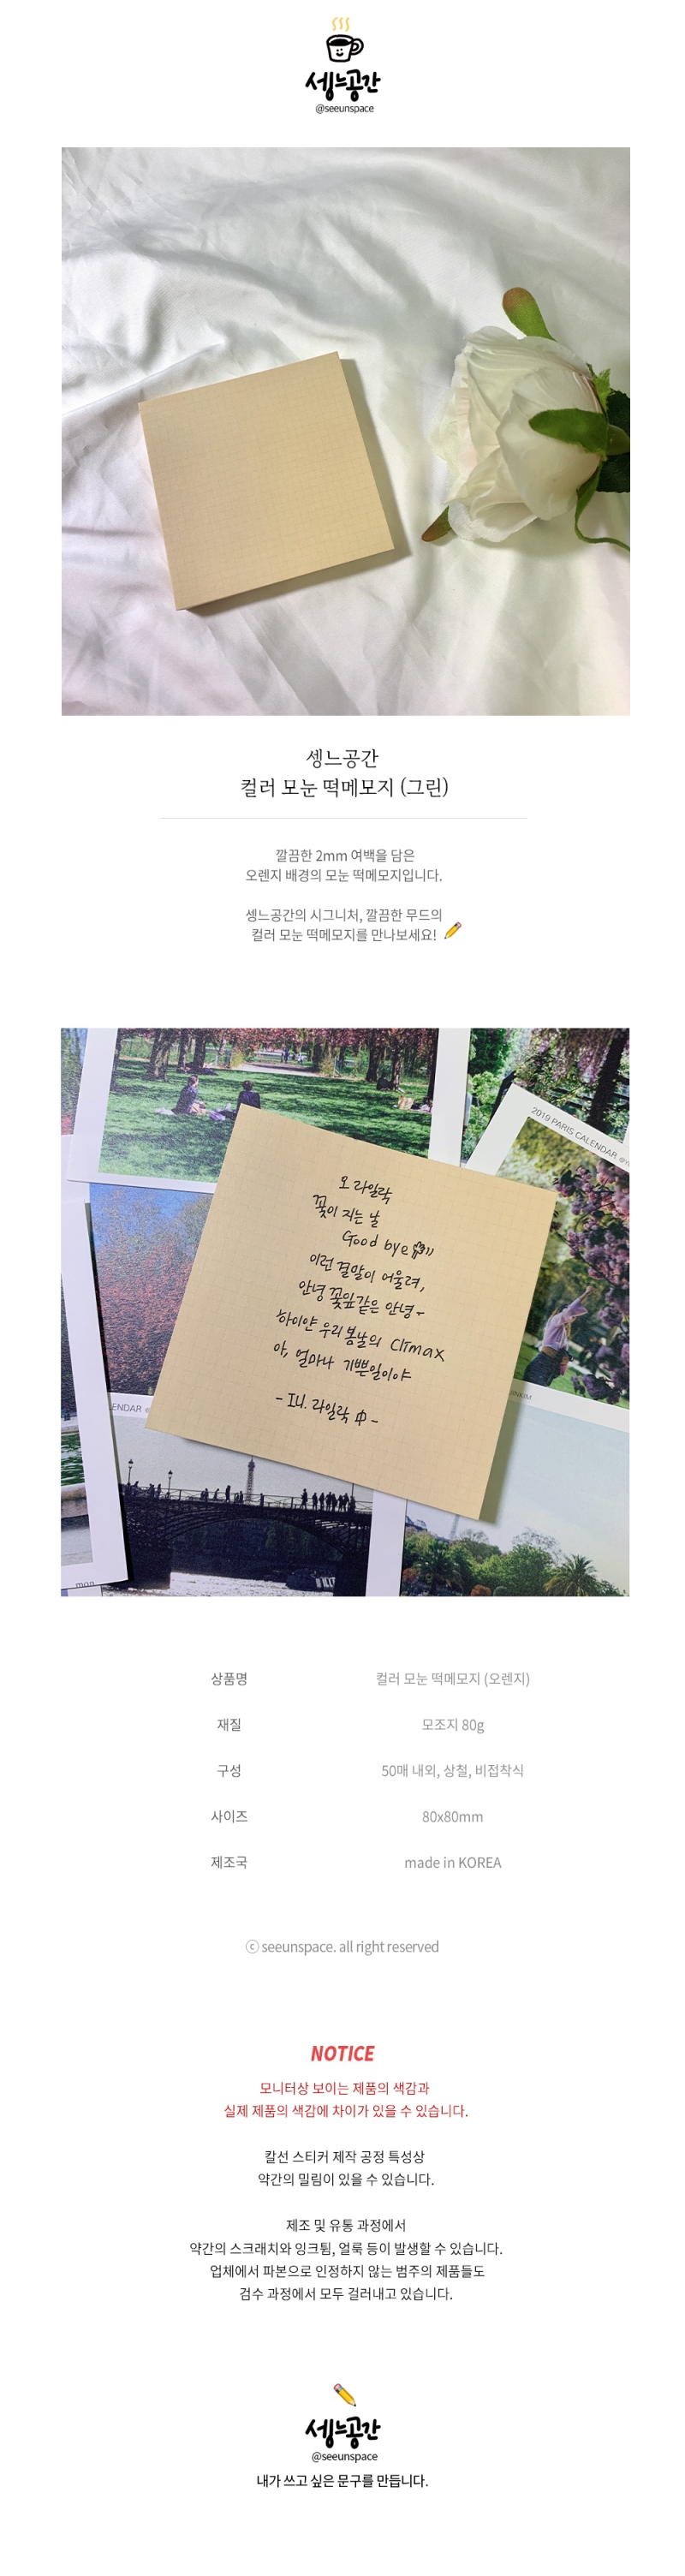 셍느공간
@seeunspace
셍느공간
컬러 모눈 떡메모지 (그린)
깔끔한 2mm 여백을 담은
오렌지 배경의 모눈 떡메모지입니다.
셍느공간의 시그니처, 깔끔한 무드의
컬러 모눈 떡메모지를 만나보세요!
2019 PARIS CALENDAR
오 라일락
꽃이 지는 날
Good bye
이런 결말이 어울려,
안녕 꽃잎같은 안녕~
하이얀 우리 봄날의 Climax
아, 얼마나 기쁜일이야
- IU. 라일락 中 -
ENDAR
mon
상품명 컬러 모눈 떡메모지 (오렌지)
재질 모조지 80g
구성 50매 내외, 상철, 비접착식
사이즈 80x80mm
제조국 made in KOREA
ⓒ seeunspace. all right reserved
NOTICE
모니터상 보이는 제품의 색감과
실제 제품의 색감에 차이가 있을 수 있습니다.
칼선 스티커 제작 공정 특성상
약간의 밀림이 있을 수 있습니다.
제조 및 유통 과정에서
약간의 스크래치와 잉크튐, 얼룩 등이 발생할 수 있습니다.
업체에서 파본으로 인정하지 않는 범주의 제품들도
검수 과정에서 모두 걸러내고 있습니다.
셍느공간
@seeunspace
내가 쓰고 싶은 문구를 만듭니다.